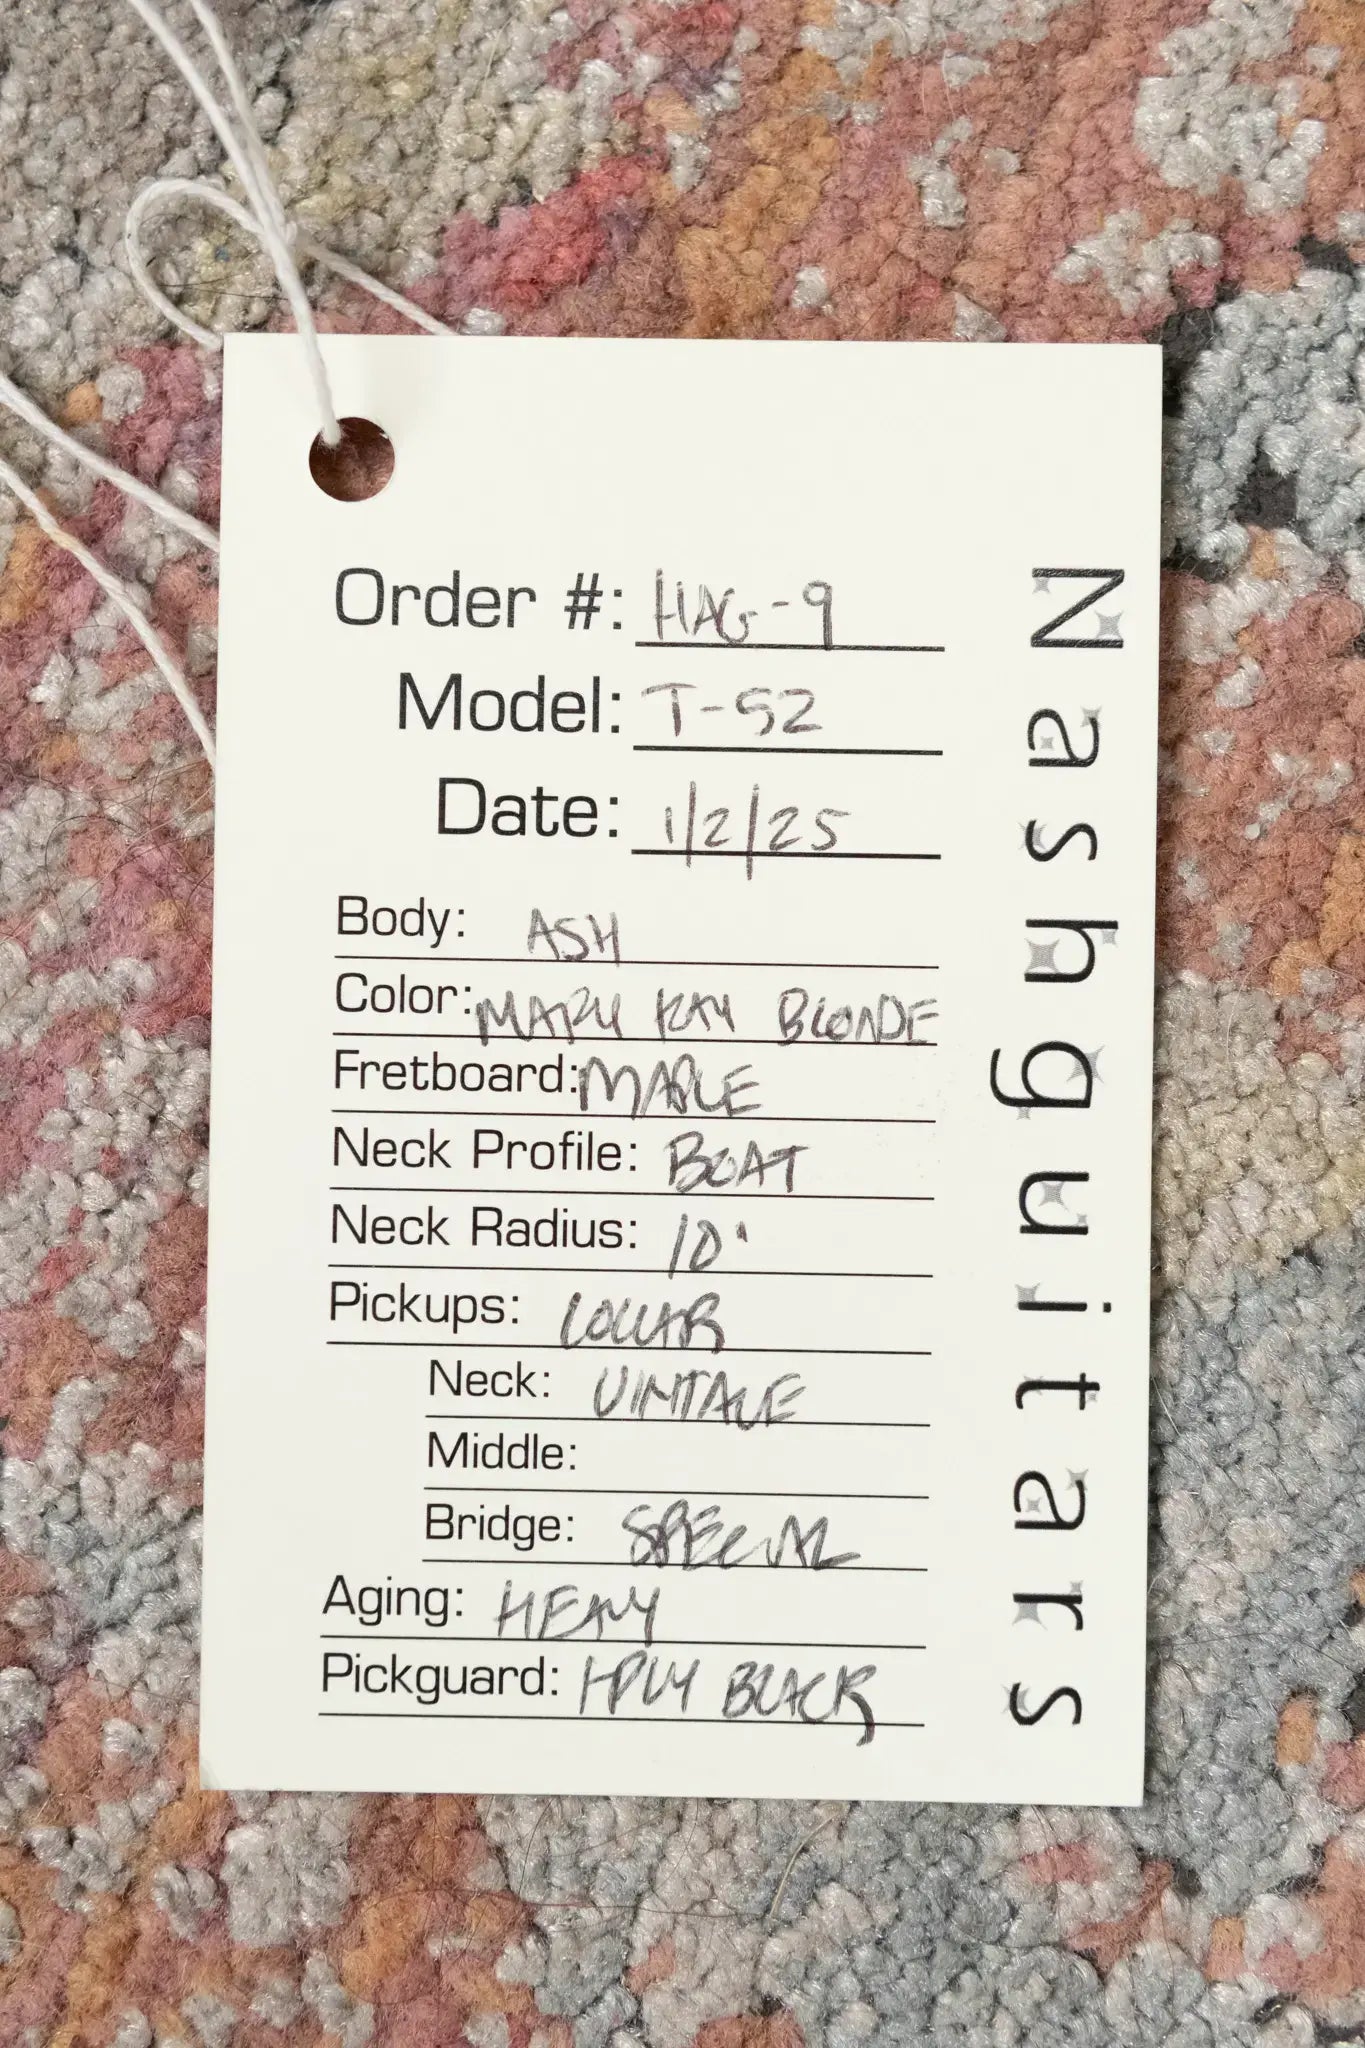 Order #: HAG-9
Model: T-52
Date: 1/2/25
Body: ASH
Color: MARY KAY BLONDE
Fretboard: MAPLE
Neck Profile: BOAT
Neck Radius: 10"
Pickups: LOLLAR
Neck: VINTAGE
Middle:
Bridge: SPECIAL
Aging: HEAVY
Pickguard: 1-PLY BLACK
Nashguitars